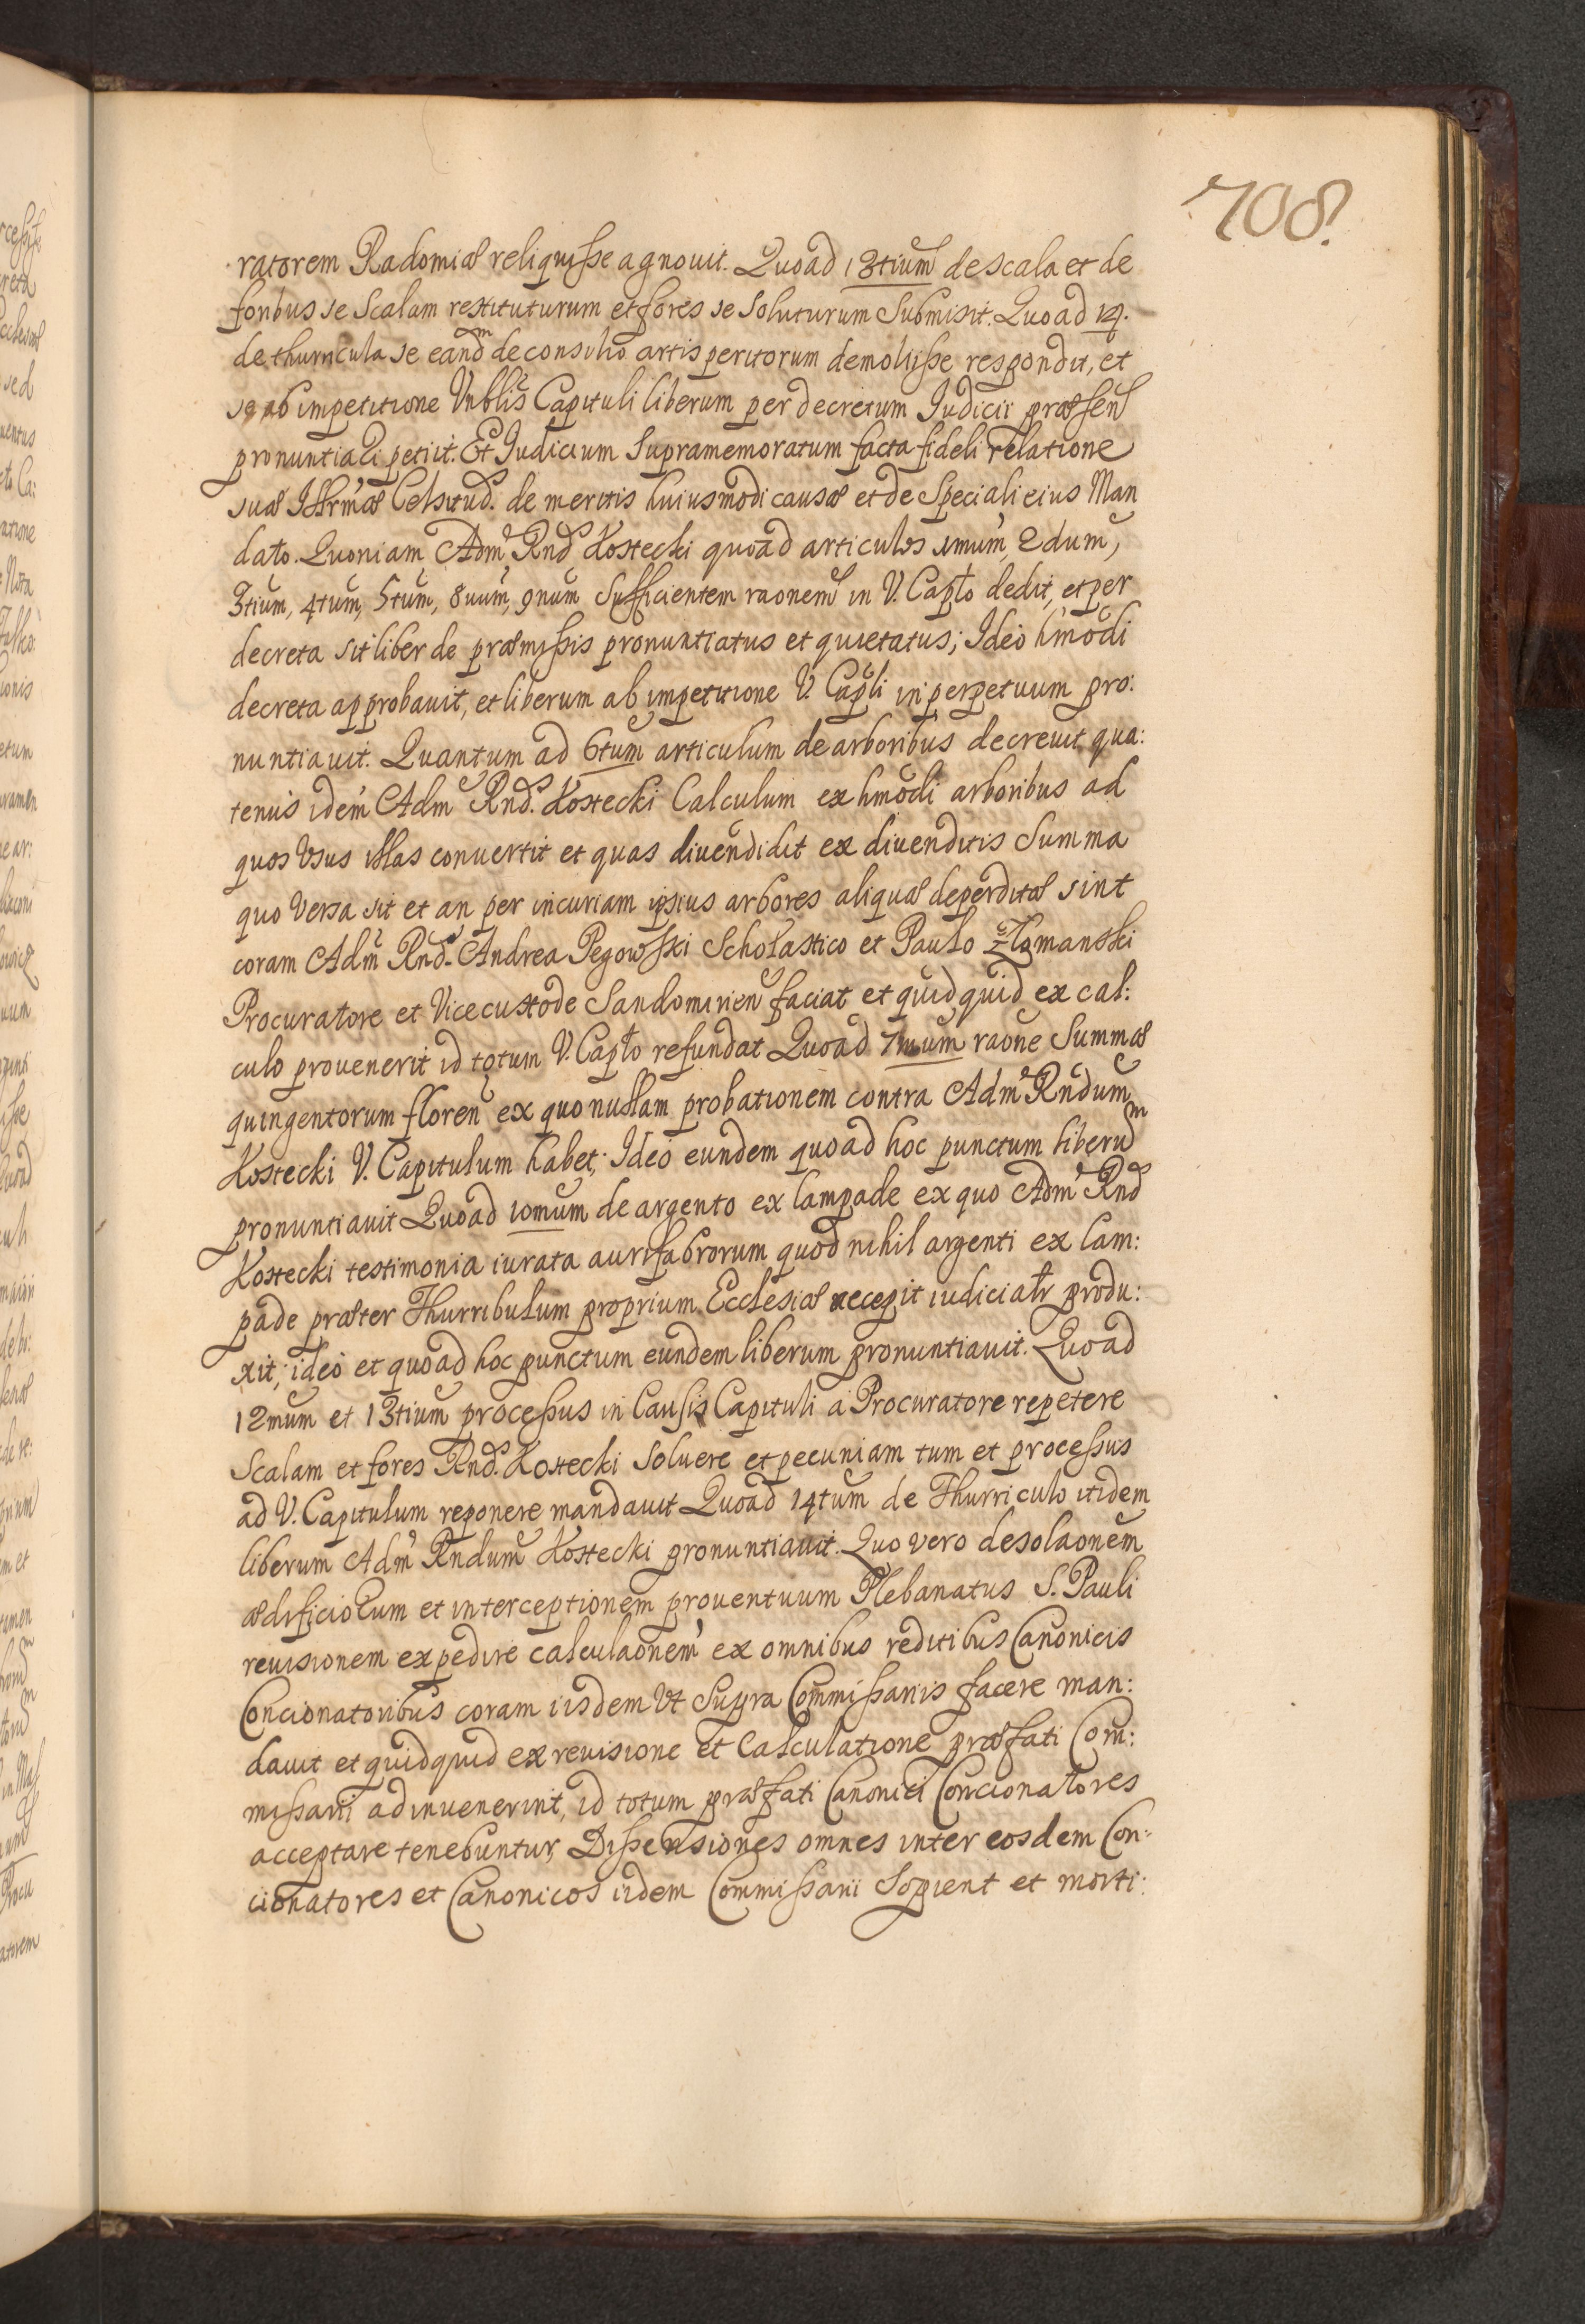 708.
ratorem Radomiæ reliquisse agnouit. Quoad 13tium de scala et de
foribus se Scalam restituturum et fores se soluturum Submisit. Quoad 14.
de thurricula se eandm de consilio artis peritorum demolisse respondit, et
se ab impetitione Vnblis Capituli liberum per decretum Judicii præsen
pronuntiari petiit. Et Judicium Supramemoratum facta fideli relatione
suæ Illrmæ Celsitud. de meritis huiusmodi causæ et de Speciali eius Man
dato. Quoniam Adm Rnd Kostecki quoad articulos 1mum, 2dum,
3tium, 4tum, 5tum, 8uum, 9num Sufficientem raonem in V. Caplo dedit, et per
decreta sit liber de præmissis pronuntiatus et quietatus; Ideo hmodi
decreta approbauit, et liberum ab impetitione V. Capli in perpetuum pro:
nuntiauit. Quantum ad 6tum articulum de arboribus decreuit, qua:
tenus idem Adm Rnd. Kostecki Calculum ex hmodi arboribus ad
quos Vsus illas conuertit et quas diuendidit ex diuenditis Summa
quo Versa sit et an per incuriam ipsius arbores aliquæ deperditæ sint
coram Adm Rnd. Andrea Pegowski Scholastico et Paulo
Procuratore et Vicecustode Sandomirien faciat et quidquid ex cal:
culo prouenerit id totum V. Caplo refundat Quoad 7mum raone Summæ
quingentorum floren ex quo nullam probationem contra Adm Rndum
Kostecki V. Capitulum habet; Ideo eundem quoad hoc punctum liberum
pronuntiauit Quoad 10mum de argento ex lampade ex quo Adm Rnd
Kostecki testimonia iurata aurifabrorum quod nihil argenti ex Lam:
pade præter Thurribulum proprium Ecclesiæ recepit iudicialr produ:
xit; ideo et quoad hoc punctum eundem liberum pronuntiauit. Quoad
12mum et 13tium processus in Causis Capituli a Procuratore repetere
Scalam et fores Rnd. Kostecki Soluere et pecuniam tum et processus
ad V. Capitulum reponere mandauit Quoad 14tum de Thurriculo itidem
liberum Adm Rndum Kostecki pronuntiauit. Quo vero desolaonem
ædificiorum et interceptionem prouentuum Plebanatus S. Pauli
reuisionem expedire calculaonem ex omnibus reditibus Canonicis
Concionatoribus coram iisdem Vt Supra Commissariis facere man:
dauit et quidquid ex reuisione et Calculatione præfati Com:
missarii adinuenerint, id totum præfati Canonici Concionatores
acceptare tenebuntur, Dissensiones omnes inter eosdem Con:
cionatores et Canonicos iidem Commissarii Sopient et morti: